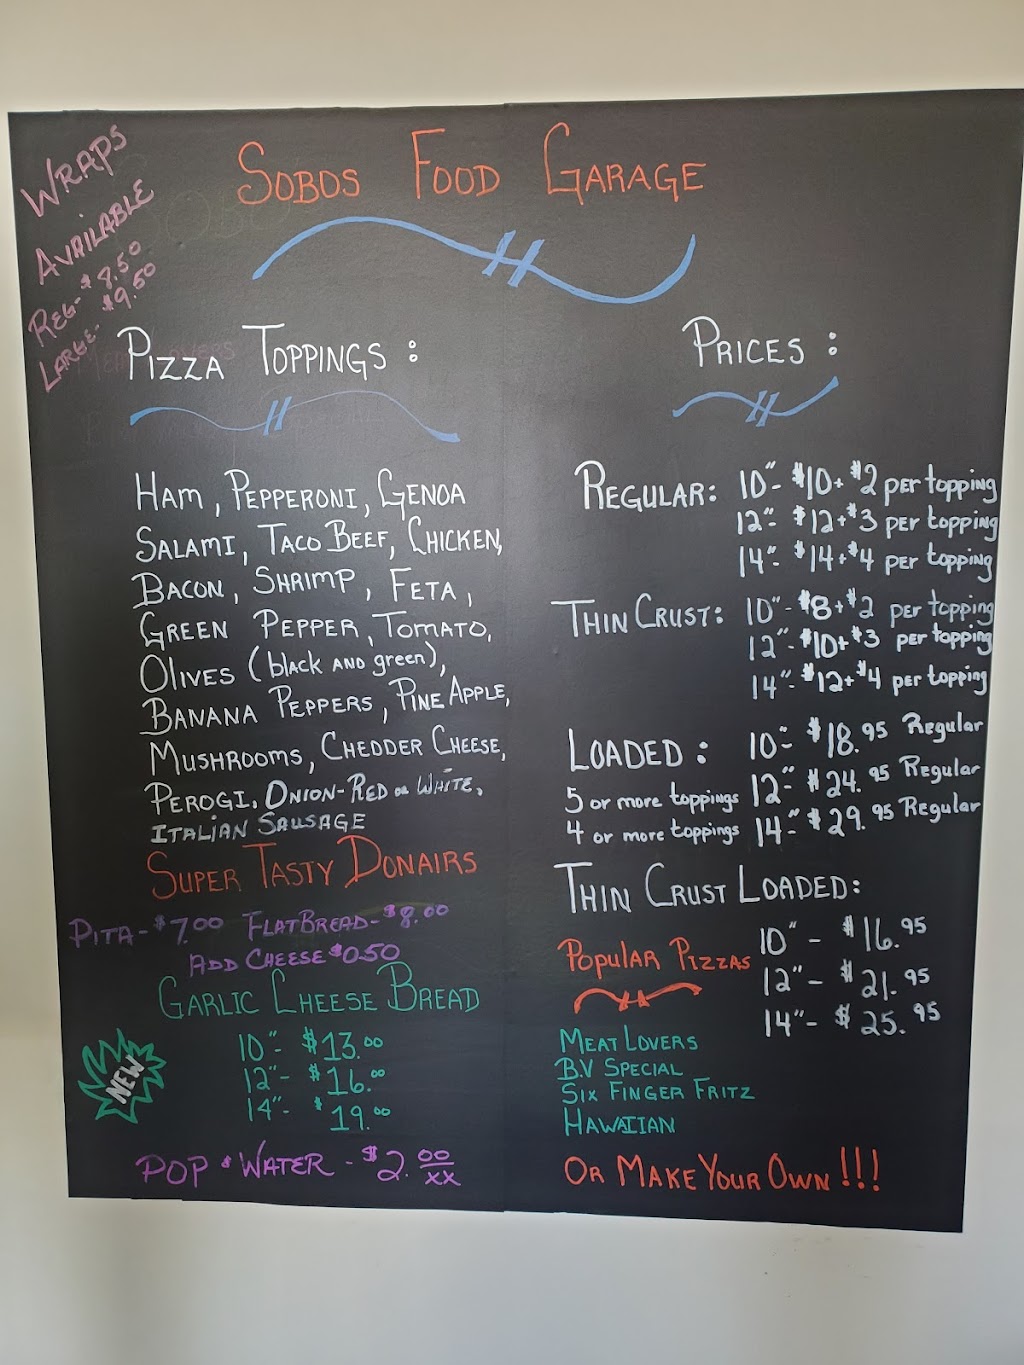 WRAPS
AVAILABLE
REG- $8.50
LARGE- $9.50
SOBOS FOOD GARAGE
PIZZA TOPPINGS :
HAM, PEPPERONI, GENOA
SALAMI, TACO BEEF, CHICKEN,
BACON, SHRIMP, FETA,
GREEN PEPPER, TOMATO,
OLIVES (black AND green),
BANANA PEPPERS, PINEAPPLE,
MUSHROOMS, CHEDDER CHEESE,
PEROGI, ONION-RED or WHITE,
ITALIAN SAUSAGE
SUPER TASTY DONAIRS
PITA-$7.00 FLATBREAD-$8.00
ADD CHEESE $0.50
GARLIC CHEESE BREAD
NEW
10"- $13.00
12"- $16.00
14"- $19.00
POP & WATER - $2.00/XX
PRICES :
REGULAR: 10"- $10+$2 per topping
12"- $12+$3 per topping
14"- $14+$4 per topping
THIN CRUST: 10"- $8+$2 per topping
12"- $10+$3 per topping
14"- $12+$4 per topping
LOADED : 10"- $18.95 Regular
5 or more toppings 12"- $24.95 Regular
4 or more toppings 14"- $29.95 Regular
THIN CRUST LOADED:
10" - $16.95
12" - $21.95
14"- $25.95
POPULAR PIZZAS
MEAT LOVERS
B.V SPECIAL
SIX FINGER FRITZ
HAWAIIAN
OR MAKE YOUR OWN !!!